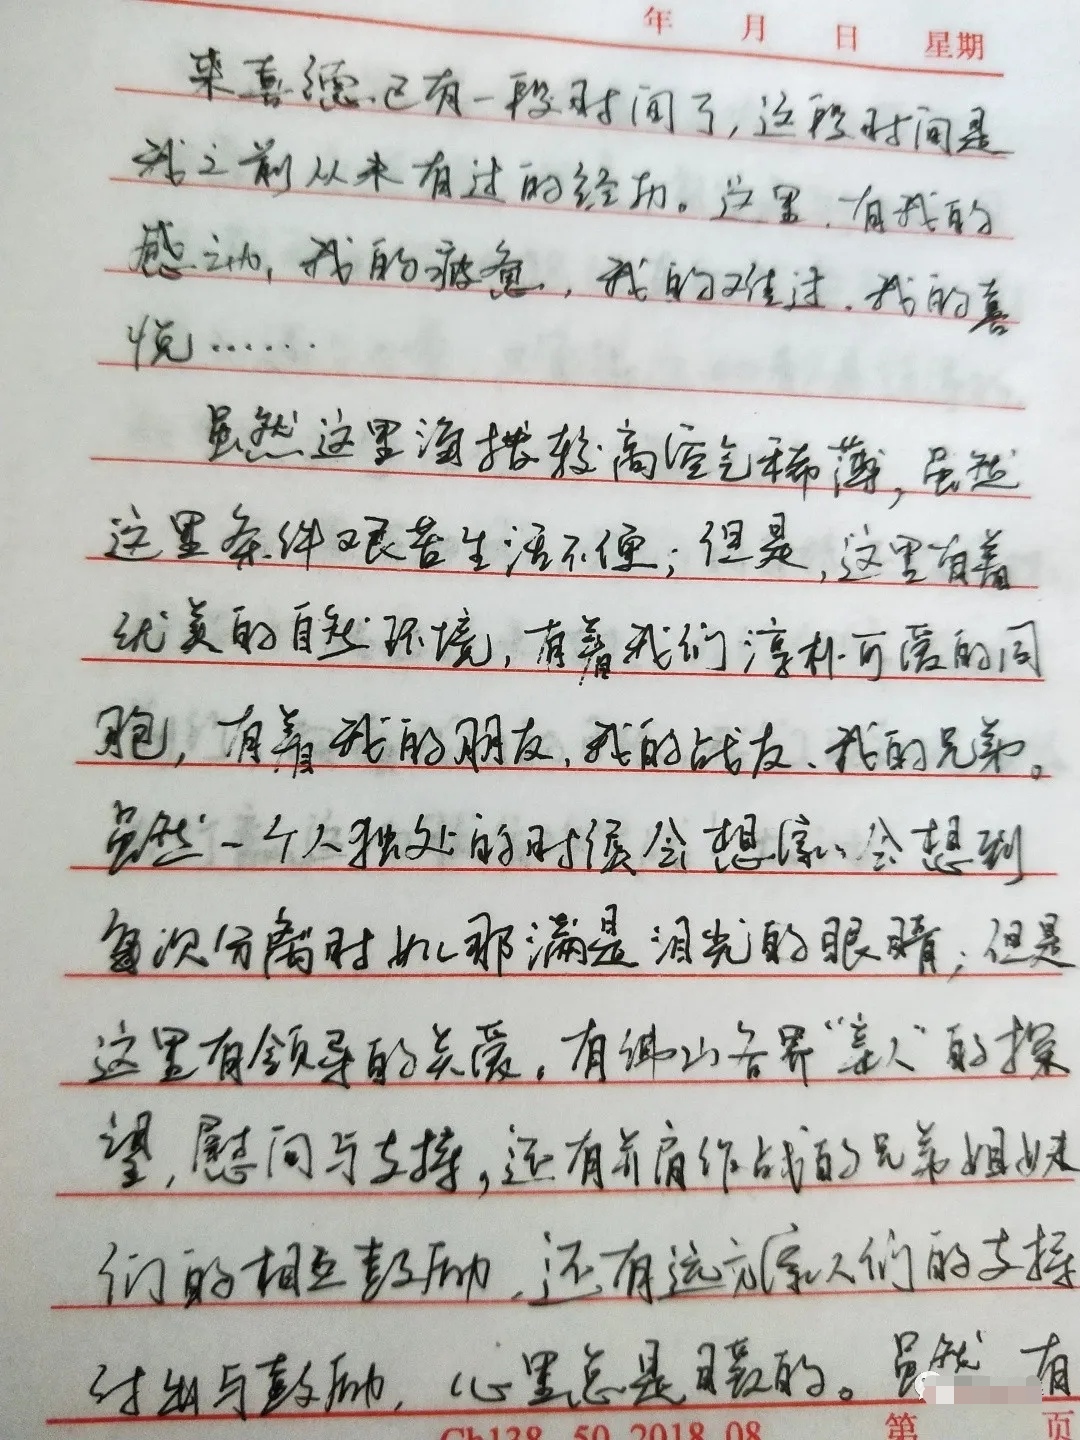 年 月 日 星期
来喜德已有一段时间了，这段时间是
我之前从未有过的经历。这里，有我的
感动，我的疲惫，我的难过，我的喜
悦……
虽然这里海拔较高空气稀薄，虽然
这里条件艰苦生活不便；但是，这里有着
优美的自然环境，有着我们淳朴可爱的同
胞，有着我的朋友、我的战友、我的兄弟。
虽然一个人独处的时候会想家，会想到
每次分离时她那满是泪光的眼睛；但是
这里有领导的关爱，有佛山各界“亲人”的探
望，慰问与支持，还有并肩作战的兄弟姐妹
们的相互鼓励，还有远方家人们的支持
付出与鼓励，心里总是暖的。虽然 有
Gb138-50 2018.08 第 页